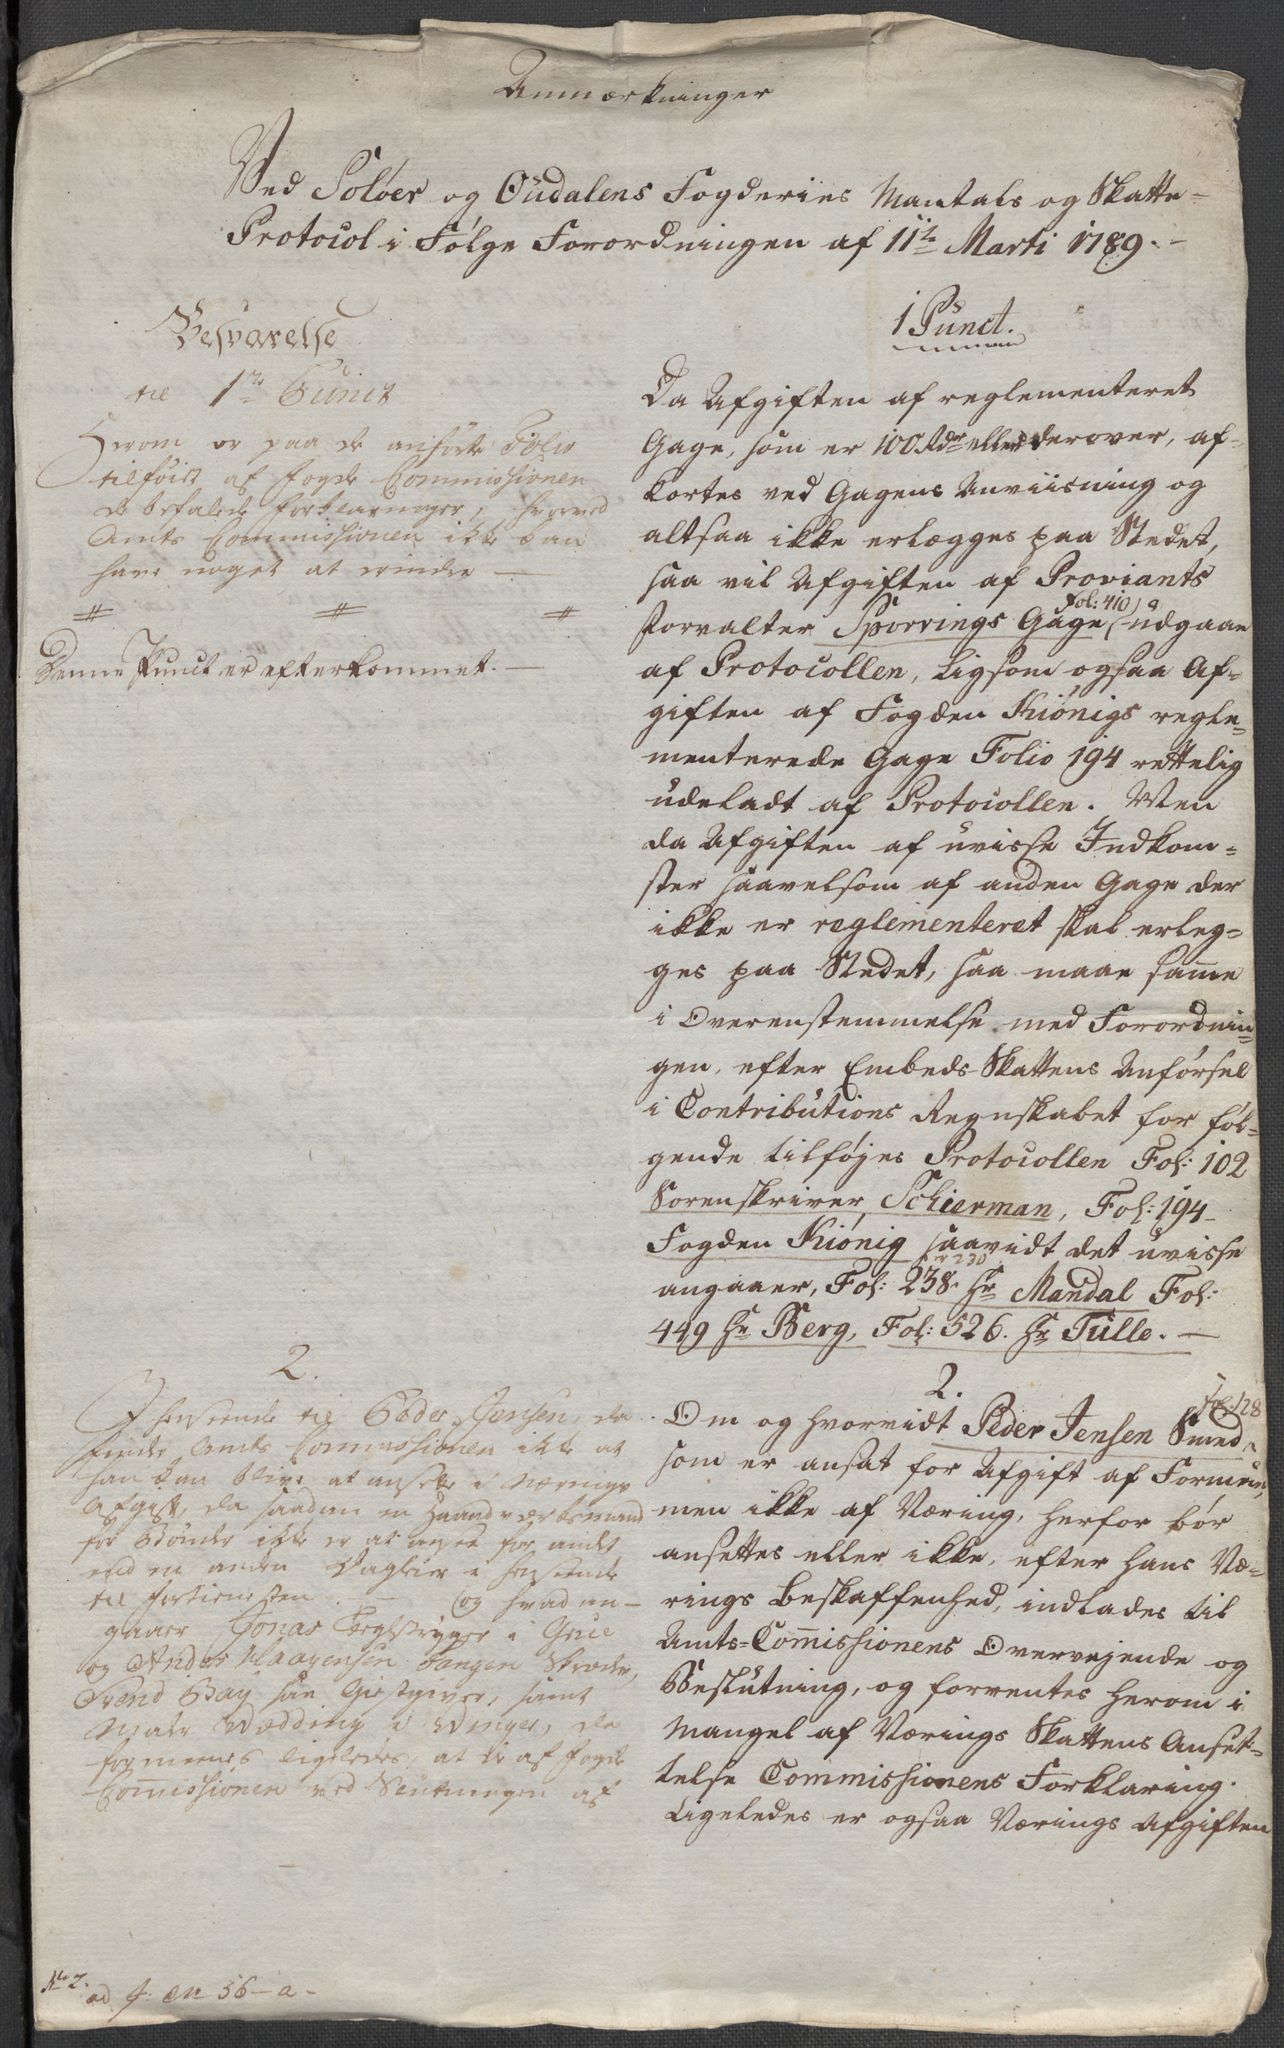 Anmærkninger
Ved Soløer og Oudalens Fogderies Mantals og Skatte-
Protocol i Følge Forordningen af 11te Marti 1789.-
Besvarelse
til 1te Punct
Herom er paa de anførte Folio
tilføiet af Fogde Commissionen
de befalede Forklaringer, hvorved
Amts Commissionen ikke kan
have noget at erindre —
Denne Punct er efterkommet. —
1 Punct.
Da Afgiften af reglementeret
Gage, som er 100 Rdr eller derover, af-
kortes ved Gagens Anviisning og
altsaa ikke erlægges paa Stedet,
saa vil Afgiften af Proviants
Forvalter Sporrings Gage (Fol: 410) udgaae
af Protocollen, Ligsom ogsaa Af-
giften af Fogden Kiønigs regle-
menterede Gage Folio 194 rettelig
udeladt af Protocollen. Men
da Afgiften af uvisse Indkom-
ster saavelsom af anden Gage der
ikke er reglementeret skal erleg-
ges paa Stedet, saa maae samme
i Overenstemmelse med Forordnin-
gen, efter Embeds-Skattens Anførsel
i Contributions Regnskabet for føl-
gende tilføjes Protocollen Fol: 102
Sorenskriver Schierman, Fol: 194
Fogden Kiønig saavidt det uvisse
angaaer, Fol: 238 Hr Mandal Fol:
449 Hr Berg, Fol: 526. Hr Tulle. —
2.
I henseende til Peder Jensen, da
finder Amts Commissionen ikke at
han kan blive at ansette i Nærings
Afgift, da saadan en Haandværksmand
for Bønder ikke er at ansee for andet
end en anden Dagleier i henseende
til Fortienesten. — (og hvad an-
gaaer Jonas Teglstryger i Grue
og Anders Haagensen Tangen Skræder,
Svend Bay som Giestgiver, samt
Wedding i Winger, da
formeenes ligeledes, at de af Fogde
Commissionen ved Slutningen af
2.
Fol: 128
Om og hvorvidt Peder Jensen Smed,
som er ansat for Afgift af Formue,
men ikke af Næring, herfor bør
ansettes eller ikke, efter hans Næ-
rings Beskaffenhed, indlades til
Amts-Commissionens Overvejende og
Beslutning, og forventes herom i
Mangel af Nærings Skattens Anset-
telse Commissionens Forklaring.
Ligeledes er ogsaa Nærings Afgiften
No 2.
ad 56 - a -